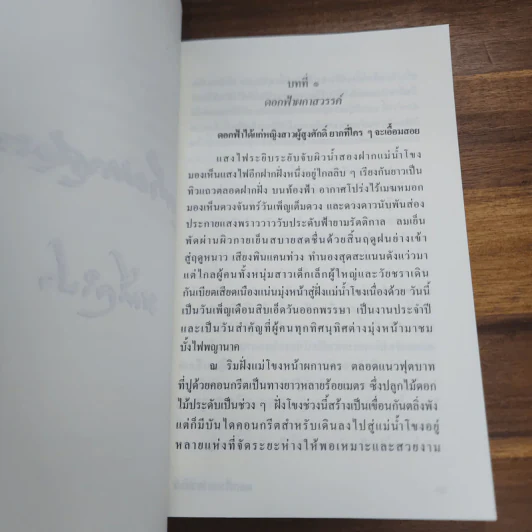 บทที่ ๑
ดอกฟ้าผกาสวรรค์
ดอกฟ้าได้แก่หญิงสาวผู้สูงศักดิ์ ยากที่ใคร ๆ จะเอื้อมสอย
แสงไฟระยิบระยับจับผิวน้ำสองฝากแม่น้ำโขง
มองเห็นแสงไฟอีกฝากฝั่งหนึ่งอยู่ไกลลิบ ๆ เรียงกันยาวเป็น
ทิวแถวตลอดฝากฝั่ง บนท้องฟ้า อากาศโปร่งไร้เมฆหมอก
มองเห็นดวงจันทร์วันเพ็ญเต็มดวง และดวงดาวนับพันส่อง
ประกายแสงพราววาววับประดับฟ้ายามรัตติกาล ลมเย็น
พัดผ่านผิวกายเย็นสบายสดชื่นด้วยสิ้นฤดูฝนย่างเข้า
สู่ฤดูหนาว เสียงพิณแคนท่วง ทำนองสุดสะแนนดังแว่วมา
แต่ไกลผู้คนทั้งหนุ่มสาวเด็กเล็กผู้ใหญ่และวัยชราเดิน
กันเบียดเสียดเนืองแน่นมุ่งหน้าสู่ฝั่งแม่น้ำโขงเนื่องด้วย วันนี้
เป็นวันเพ็ญเดือนสิบเอ็ดวันออกพรรษา เป็นงานประจำปี
และเป็นวันสำคัญที่ผู้คนทุกทิศนุทิศต่างมุ่งหน้ามาชม
บั้งไฟพญานาค
ณ ริมฝั่งแม่โขงหน้าผกานคร ตลอดแนวฟุตบาท
ที่ปูด้วยคอนกรีตเป็นทางยาวหลายร้อยเมตร ซึ่งปลูกไม้ดอก
ไม้ประดับเป็นช่วง ๆ ฝั่งโขงช่วงนี้สร้างเป็นเขื่อนกันตลิ่งพัง
แต่ก็มีบันไดคอนกรีตสำหรับเดินลงไปสู่แม่น้ำโขงอยู่
หลายแห่งที่จัดระยะห่างให้พอเหมาะและสวยงาม